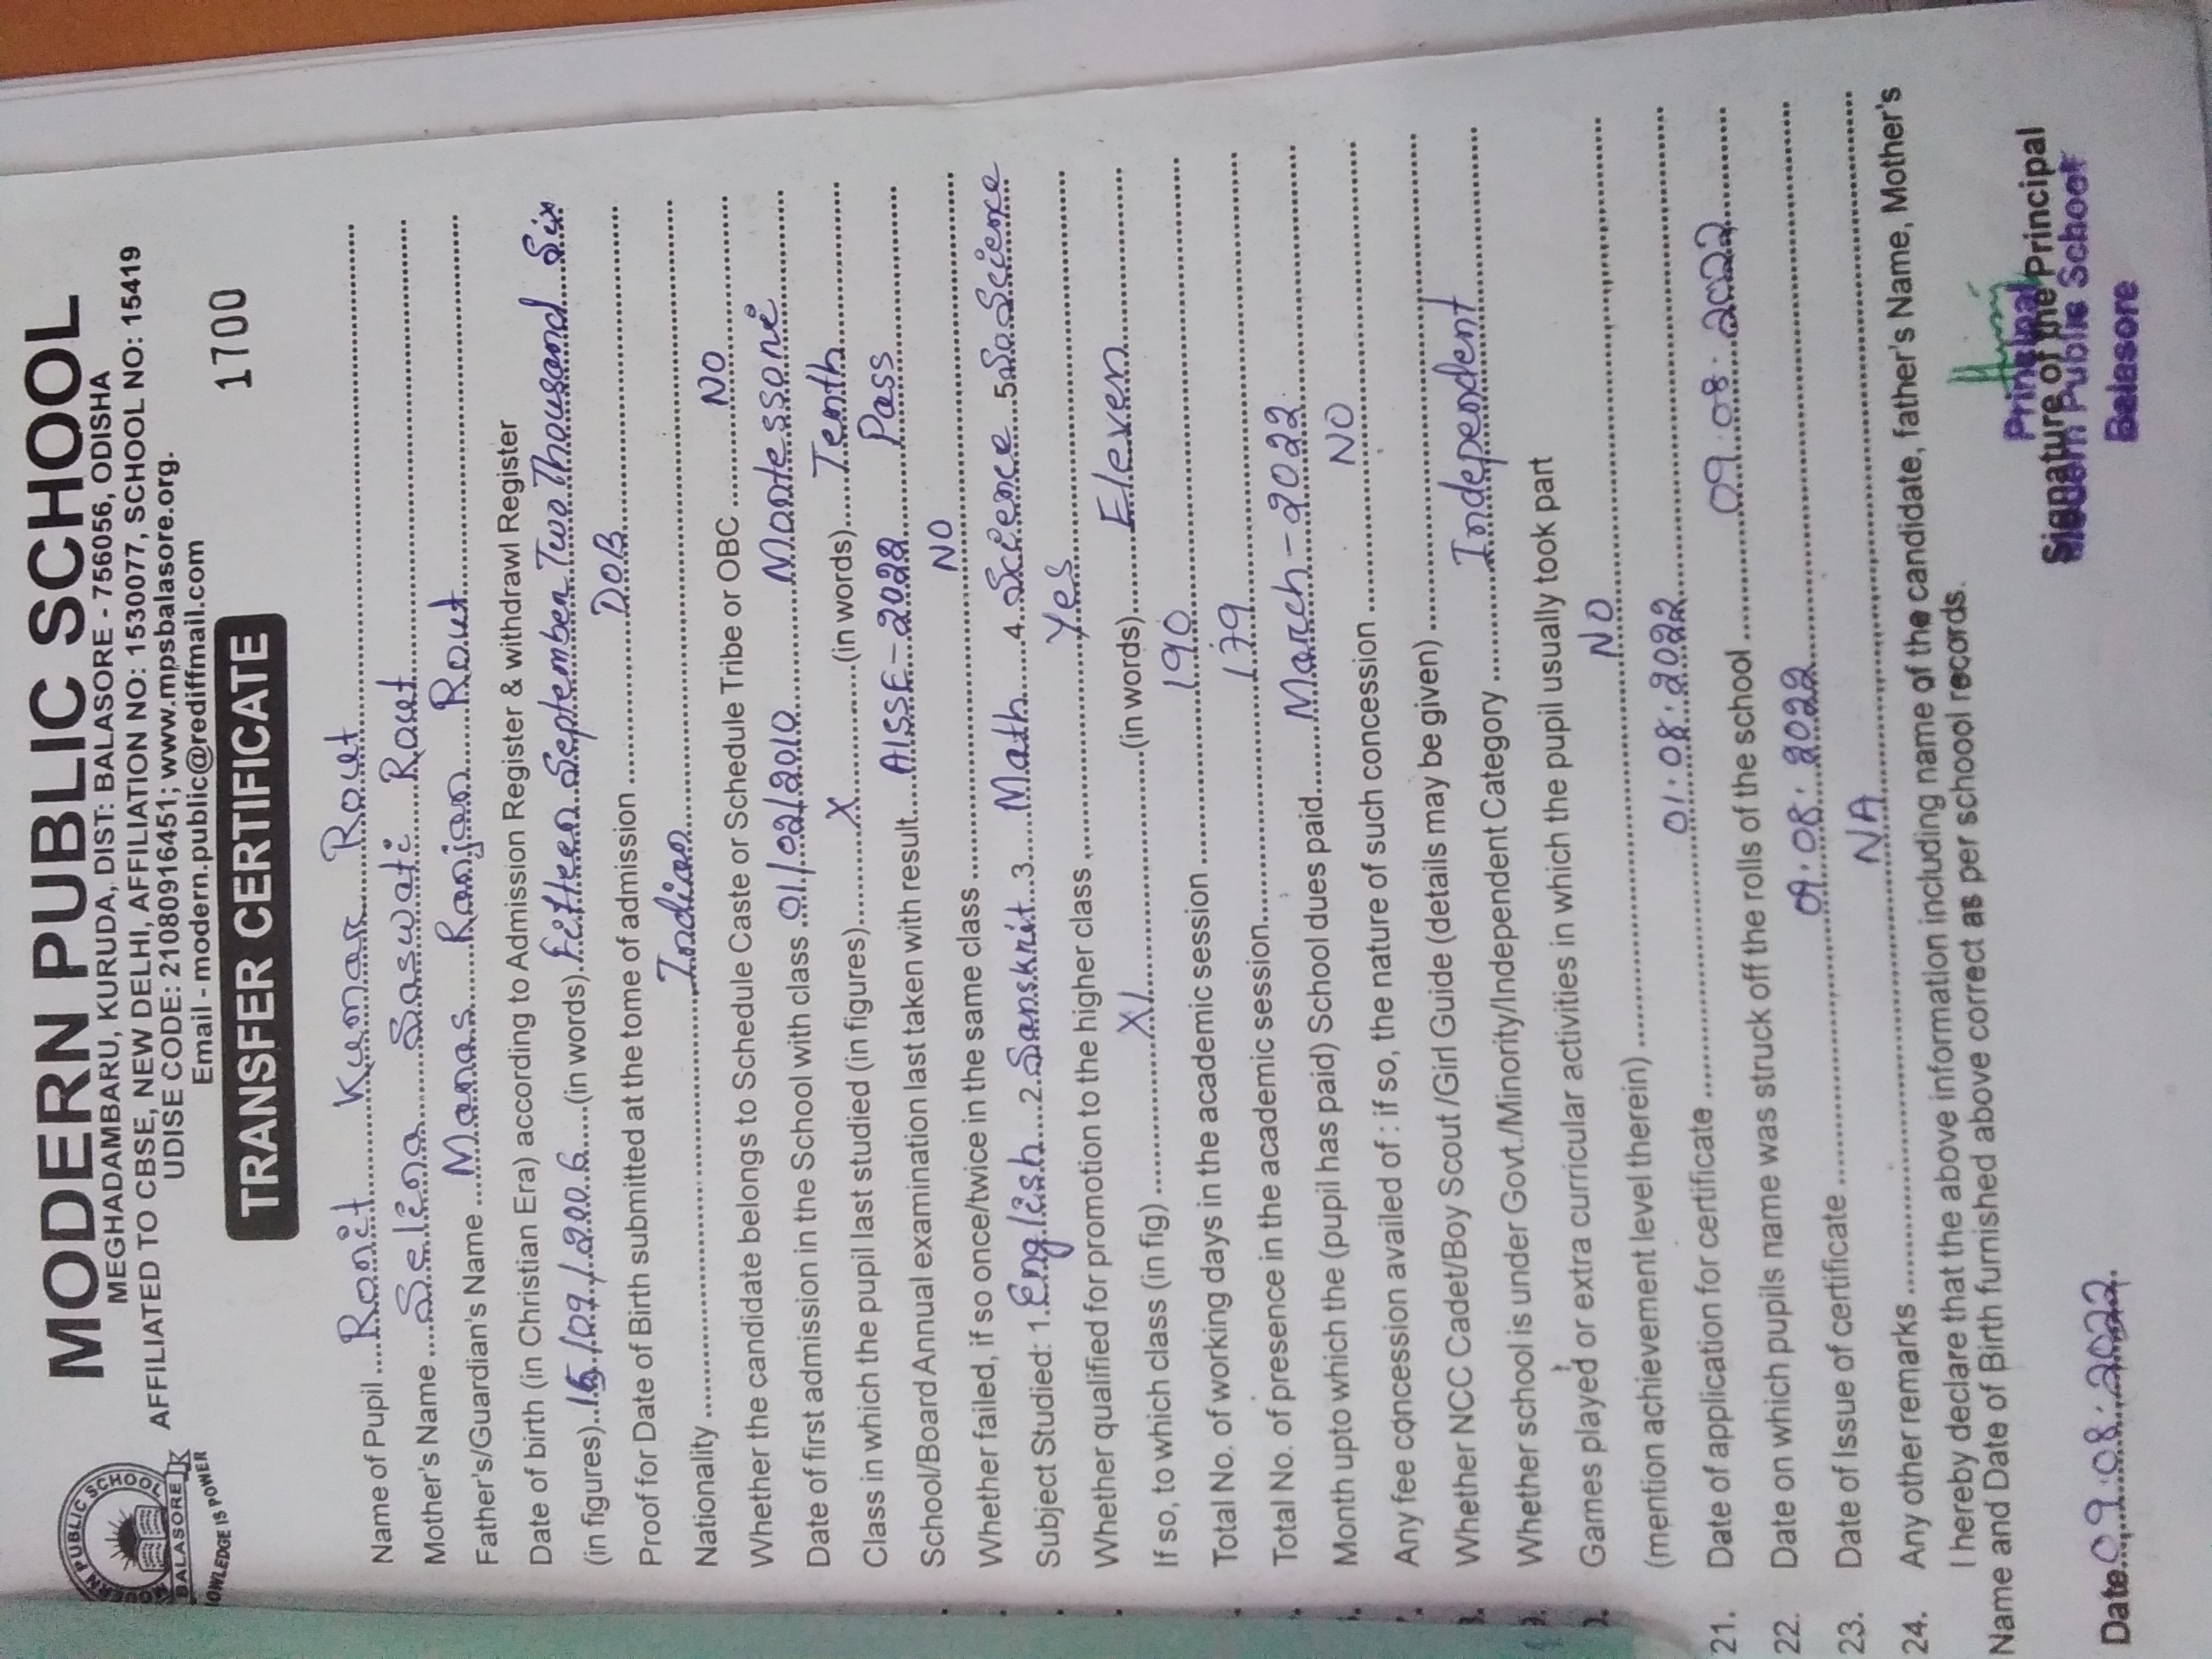 MODERN PUBLIC SCHOOL
MEGHADAMBARU, KURUDA, DIST: BALASORE - 756056, ODISHA
AFFILIATED TO CBSE, NEW DELHI, AFFILIATION NO: 1530077, SCHOOL NO: 15419
UDISE CODE: 21080916451; www.mpsbalasore.org.
Email - modern.public@rediffmail.com
BALASORE
KNOWLEDGE IS POWER
TRANSFER CERTIFICATE 1700
Name of Pupil ..... Ronit Kumar Rout
Mother's Name ..... Selina Saswati Rout
Father's/Guardian's Name ..... Manas Ranjan Rout
Date of birth (in Christian Era) according to Admission Register & withdrawl Register
(in figures) 15/09/2006 (in words) Fifteen September Two Thousand Six
Proof for Date of Birth submitted at the tome of admission ..... DOB
Nationality ..... Indian
Whether the candidate belongs to Schedule Caste or Schedule Tribe or OBC ..... NO
Date of first admission in the School with class 01/02/2010 Montessori
Class in which the pupil last studied (in figures) X (in words) Tenth
School/Board Annual examination last taken with result AISSE-2022 Pass
Whether failed, if so once/twice in the same class ..... NO
Subject Studied: 1. English 2. Sanskrit 3. Math 4. Science 5. So.Science
Whether qualified for promotion to the higher class, ..... Yes
If so, to which class (in fig) XI (in words) Eleven
Total No. of working days in the academic session ..... 190
Total No. of presence in the academic session ..... 179
Month upto which the (pupil has paid) School dues paid March-2022
Any fee concession availed of : if so, the nature of such concession NO
Whether NCC Cadet/Boy Scout /Girl Guide (details may be given) .....
Whether school is under Govt./Minority/Independent Category ..... Independent
Games played or extra curricular activities in which the pupil usually took part
(mention achievement level therein) ..... NO
21. Date of application for certificate ..... 01.08.2022
22. Date on which pupils name was struck off the rolls of the school ..... 09.08.2022
23. Date of Issue of certificate ..... 09.08.2022
24. Any other remarks ..... NA
I hereby declare that the above information including name of the candidate, father's Name, Mother's
Name and Date of Birth furnished above correct as per school records.
Principal
Date 09.08.2022. Signature of the Principal
Modern Public School
Balasore